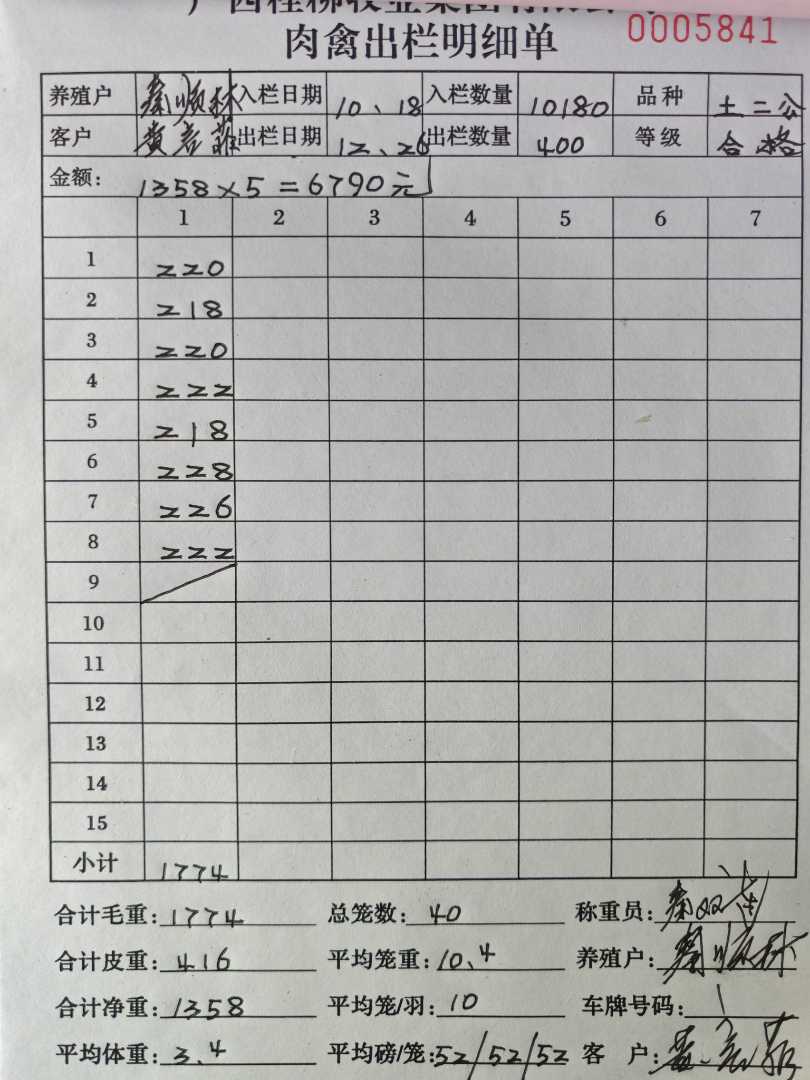 肉禽出栏明细单 0005841
养殖户 秦顺林 入栏日期 10、18 入栏数量 10180 品种 土二公
客户 出栏日期 12、26 出栏数量 400 等级 合格
金额: 1358×5=6790元
1 2 3 4 5 6 7
1 220
2 218
3 220
4 222
5 218
6 228
7 226
8 222
9
10
11
12
13
14
15
小计 1774
合计毛重: 1774 总笼数: 40 称重员:
合计皮重: 416 平均笼重: 10、4 养殖户: 秦顺林
合计净重: 1358 平均笼/羽: 10 车牌号码:
平均体重: 3.4 平均磅/笼: 52/52/52 客 户: